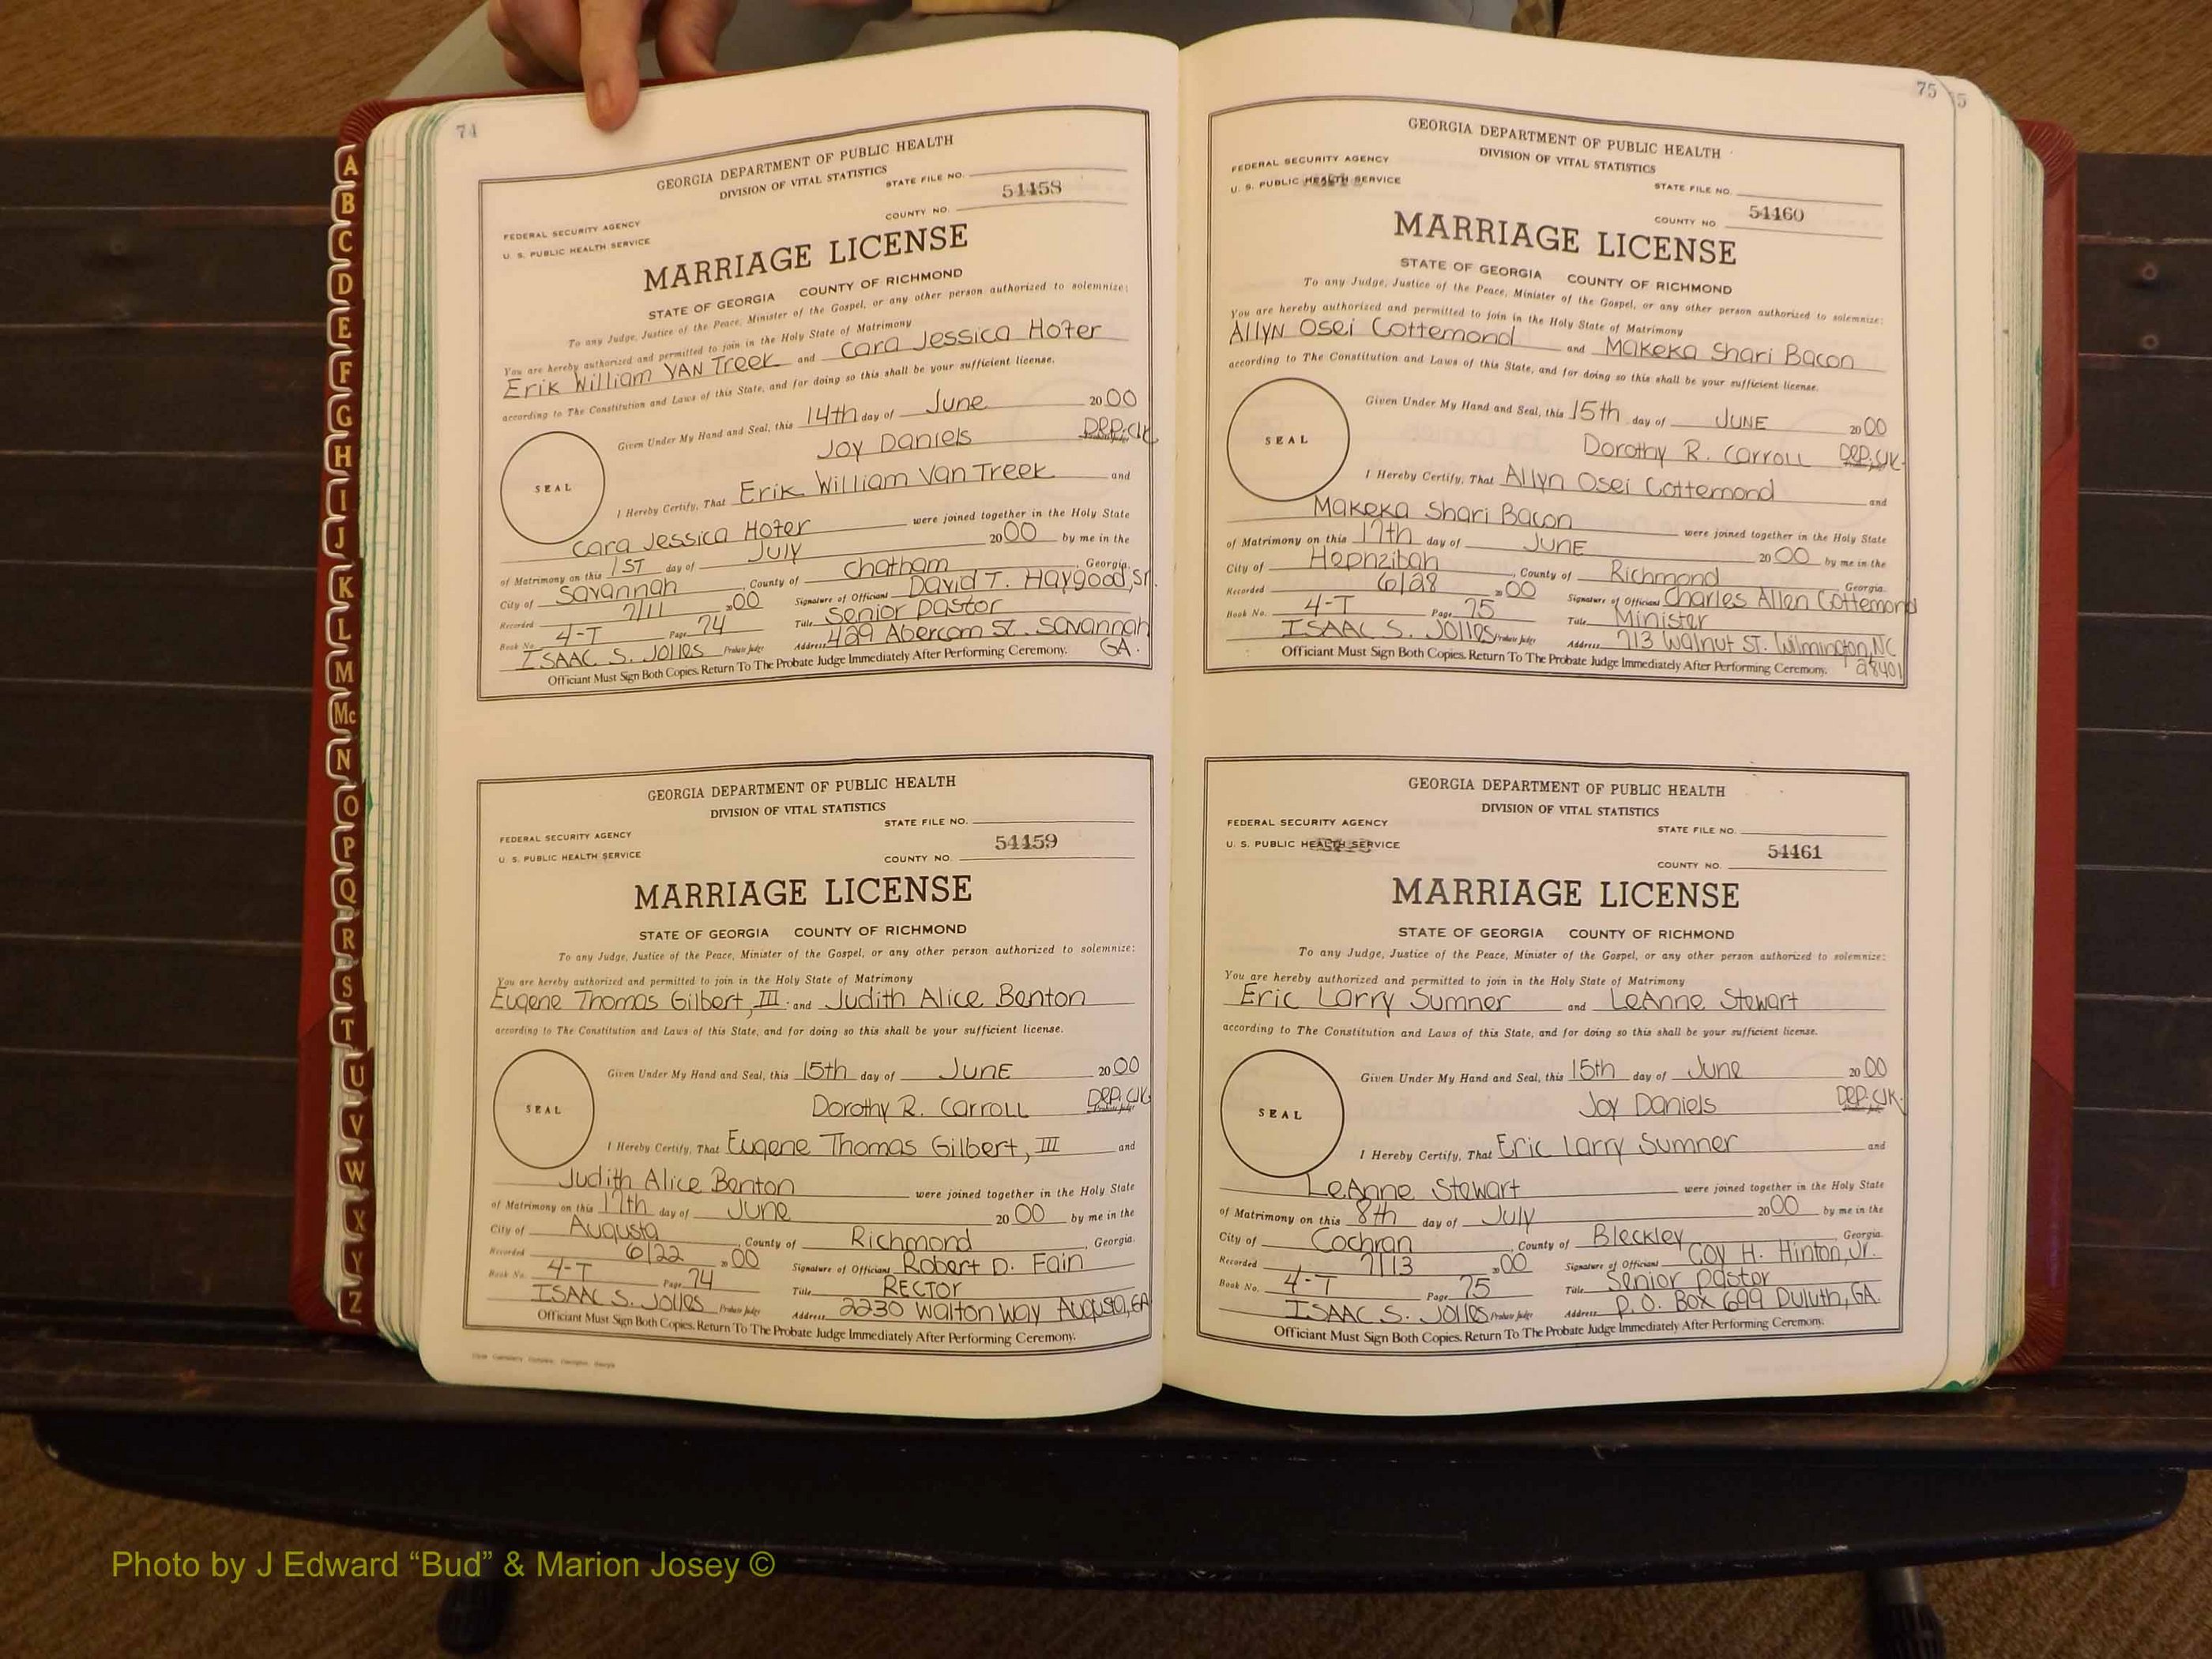 74
GEORGIA DEPARTMENT OF PUBLIC HEALTH
DIVISION OF VITAL STATISTICS
STATE FILE NO.
54458
FEDERAL SECURITY AGENCY
COUNTY NO.
U. S. PUBLIC HEALTH SERVICE
MARRIAGE LICENSE
STATE OF GEORGIA COUNTY OF RICHMOND
To any Judge, Justice of the Peace, Minister of the Gospel, or any other person authorized to solemnize:
You are hereby authorized and permitted to join in the Holy State of Matrimony
Erik William Van Treek and Cara Jessica Hofer
according to The Constitution and Laws of this State, and for doing so this shall be your sufficient license.
Given Under My Hand and Seal, this 14th day of June 2000
SEAL
Joy Daniels Dep. Clk
I Hereby Certify, That Erik William Van Treek and
Cara Jessica Hofer were joined together in the Holy State
of Matrimony on this 1st day of July 2000 by me in the
City of Savannah County of Chatham, Georgia.
Recorded 7/11 2000 Signature of Officiant David T. Haygood, Sr.
Book No. 4-T Page 74 Title Senior Pastor
ISAAC S. Jolles Probate Judge Address 429 Abercorn St. Savannah GA.
Officiant Must Sign Both Copies. Return To The Probate Judge Immediately After Performing Ceremony.
GEORGIA DEPARTMENT OF PUBLIC HEALTH
DIVISION OF VITAL STATISTICS
STATE FILE NO.
FEDERAL SECURITY AGENCY
54459
U. S. PUBLIC HEALTH SERVICE
COUNTY NO.
MARRIAGE LICENSE
STATE OF GEORGIA COUNTY OF RICHMOND
To any Judge, Justice of the Peace, Minister of the Gospel, or any other person authorized to solemnize:
You are hereby authorized and permitted to join in the Holy State of Matrimony
Eugene Thomas Gilbert, III and Judith Alice Benton
according to The Constitution and Laws of this State, and for doing so this shall be your sufficient license.
Given Under My Hand and Seal, this 15th day of June 2000
SEAL
Dorothy R. Carroll Dep. Clk
I Hereby Certify, That Eugene Thomas Gilbert, III and
Judith Alice Benton were joined together in the Holy State
of Matrimony on this 17th day of June 2000 by me in the
City of Augusta, County of Richmond, Georgia.
Recorded 6/22 2000 Signature of Officiant Robert D. Fain
Book No. 4-T Page 74 Title RECTOR
ISAAC S. Jolles Probate Judge Address 2230 Walton Way Augusta, GA
Officiant Must Sign Both Copies. Return To The Probate Judge Immediately After Performing Ceremony.
75
5
GEORGIA DEPARTMENT OF PUBLIC HEALTH
DIVISION OF VITAL STATISTICS
FEDERAL SECURITY AGENCY
STATE FILE NO.
U. S. PUBLIC HEALTH SERVICE
54460
COUNTY NO.
MARRIAGE LICENSE
STATE OF GEORGIA COUNTY OF RICHMOND
To any Judge, Justice of the Peace, Minister of the Gospel, or any other person authorized to solemnize:
You are hereby authorized and permitted to join in the Holy State of Matrimony
Allyn Osei Cottemond and Makeka Shari Bacon
according to The Constitution and Laws of this State, and for doing so this shall be your sufficient license.
Given Under My Hand and Seal, this 15th day of JUNE 2000
SEAL
Dorothy R. Carroll Dep. Clk.
I Hereby Certify, That Allyn Osei Cottemond and
Makeka Shari Bacon were joined together in the Holy State
of Matrimony on this 17th day of JUNE 2000 by me in the
City of Hephzibah, County of Richmond Georgia.
Recorded 6/28 2000 Signature of Officiant Charles Allen Cottemond
Book No. 4-T Page 75 Title Minister
ISAAC S. Jolles Probate Judge Address 713 Walnut St. Wilmington, NC 28401
Officiant Must Sign Both Copies. Return To The Probate Judge Immediately After Performing Ceremony.
GEORGIA DEPARTMENT OF PUBLIC HEALTH
DIVISION OF VITAL STATISTICS
FEDERAL SECURITY AGENCY
STATE FILE NO.
U. S. PUBLIC HEALTH SERVICE
54461
COUNTY NO.
MARRIAGE LICENSE
STATE OF GEORGIA COUNTY OF RICHMOND
To any Judge, Justice of the Peace, Minister of the Gospel, or any other person authorized to solemnize:
You are hereby authorized and permitted to join in the Holy State of Matrimony
Eric Larry Sumner and LeAnne Stewart
according to The Constitution and Laws of this State, and for doing so this shall be your sufficient license.
Given Under My Hand and Seal, this 15th day of June 2000
SEAL
Joy Daniels Dep. Clk.
I Hereby Certify, That Eric Larry Sumner and
LeAnne Stewart were joined together in the Holy State
of Matrimony on this 8th day of July 2000 by me in the
City of Cochran, County of Bleckley, Georgia.
Recorded 7/13 2000 Signature of Officiant Coy H. Hinton, Jr.
Book No. 4-T Page 75 Title Senior Pastor
ISAAC S. Jolles Probate Judge Address P.O. Box 699 Duluth, GA.
Officiant Must Sign Both Copies. Return To The Probate Judge Immediately After Performing Ceremony.
A
B
C
D
E
F
G
H
I
J
K
L
M
Mc
N
O
P
Q
R
S
T
U
V
W
X
Y
Z
Photo by J Edward “Bud” & Marion Josey ©